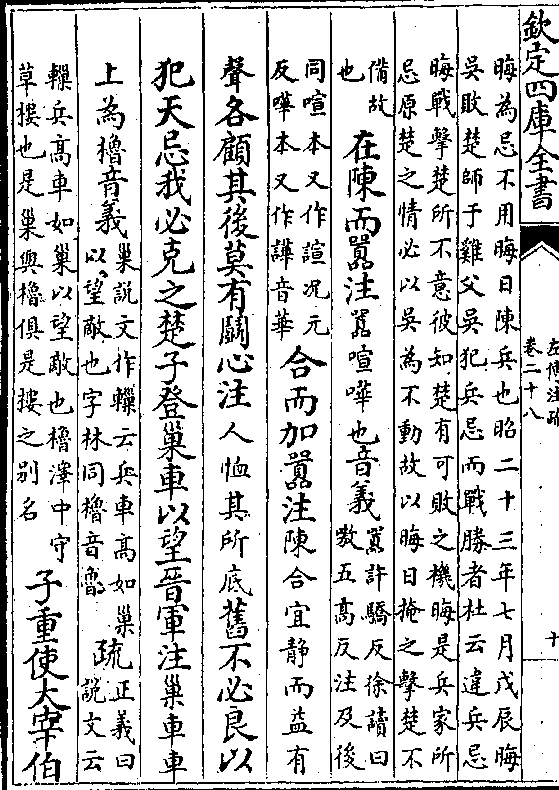 欽定四庫全書
左傳注疏
卷二十八
十
晦為忌不用晦日陳兵也昭二十三年七月戊辰晦
吳敗楚師于雞父吳犯兵忌而戰勝者杜云違兵忌
晦戰擊楚所不意彼知楚有可敗之機晦是兵家所
忌原楚之情必以吳為不動故以晦日掩之擊楚不
備故
也
在陳而嚻注嚻喧嘩也音義
嚻許驕反徐讀曰
敖五高反注及後
同喧本又作諠况元
反嘩本又作譁音華
合而加嚻注陳合宜静而益有
聲各顧其後莫有鬬心注人恤其所底舊不必良以
犯天忌我必克之楚子登巢車以望晉軍注巢車車
上為櫓音義
巢說文作轈云兵車高如巢
以望敵也字林同櫓音魯
疏
正義曰
說文云
轈兵高車如巢以望敵也櫓澤中守
草摟也是巢與櫓俱是摟之别名
子重使大宰伯